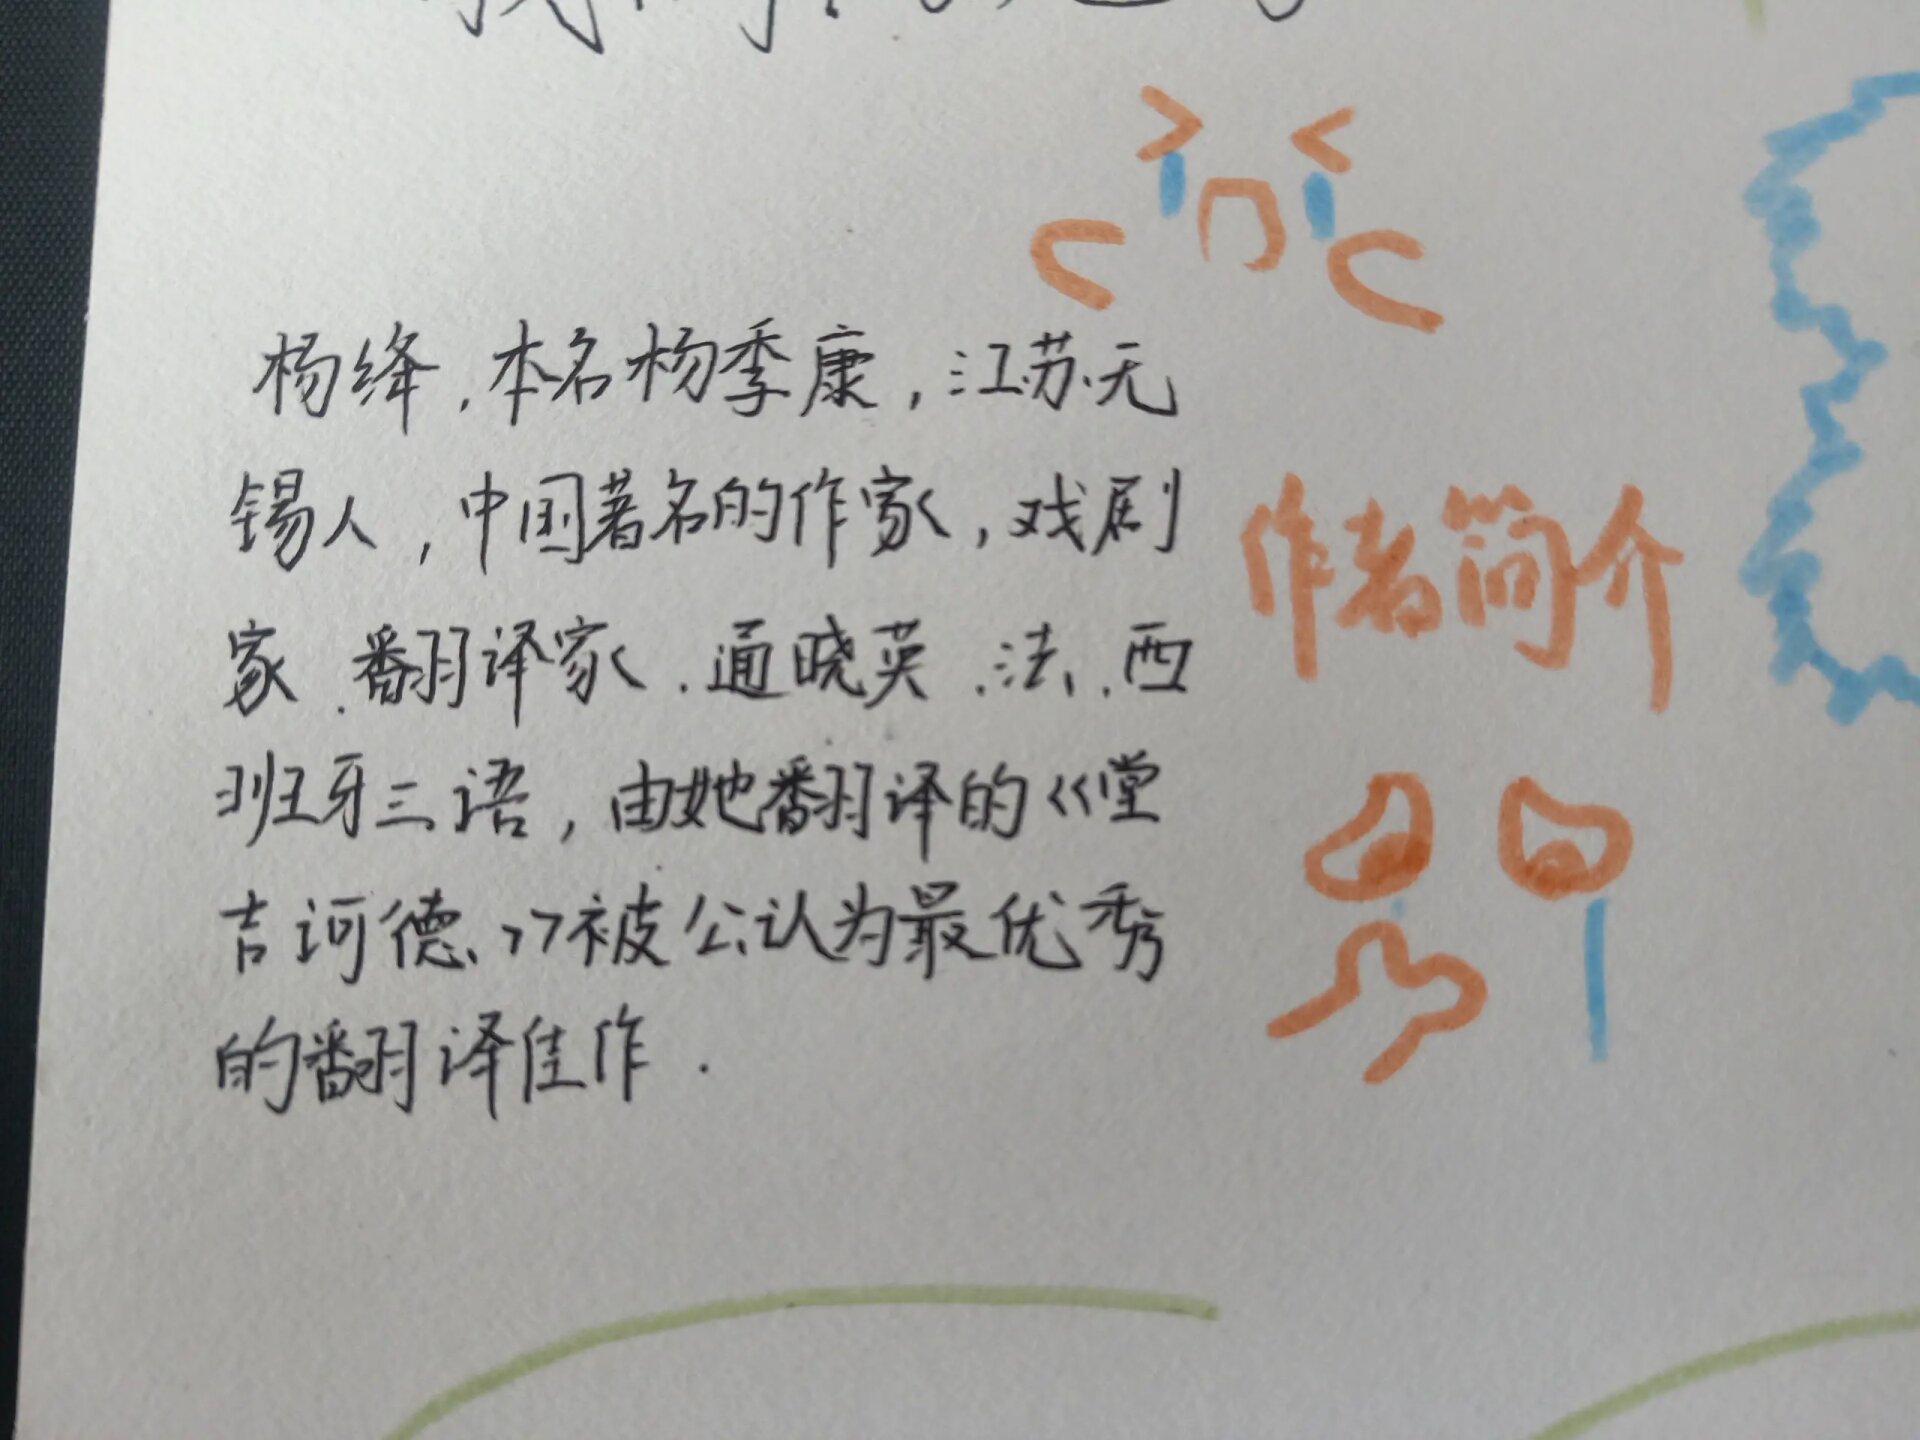 杨绛，本名杨季康，江苏无
锡人，中国著名的作家，戏剧
家、翻译家、通晓英、法、西
班牙三语，由她翻译的《堂
吉诃德》被公认为最优秀
的翻译佳作.
作者简介